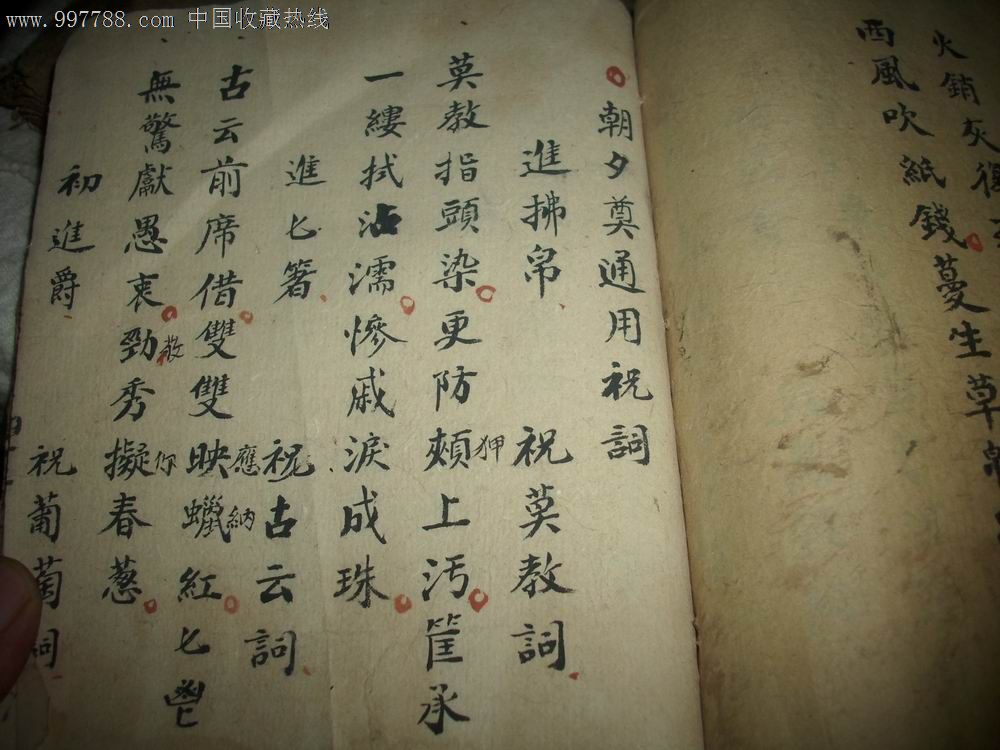 www.997788.com 中国收藏热线
火銷灰復
西風吹紙錢蔓生草
朝夕奠通用祝詞
進拂帛 祝莫教詞
莫教指頭染更防頰上汚筐承
狎
一縷拭沾濡慘戚淚成珠
進匕箸 祝古云詞
應納
古云前席借雙雙映蠟紅匕鬯
敬 你
無驚獻愚衷勁秀擬春葱
初進爵 祝葡萄詞